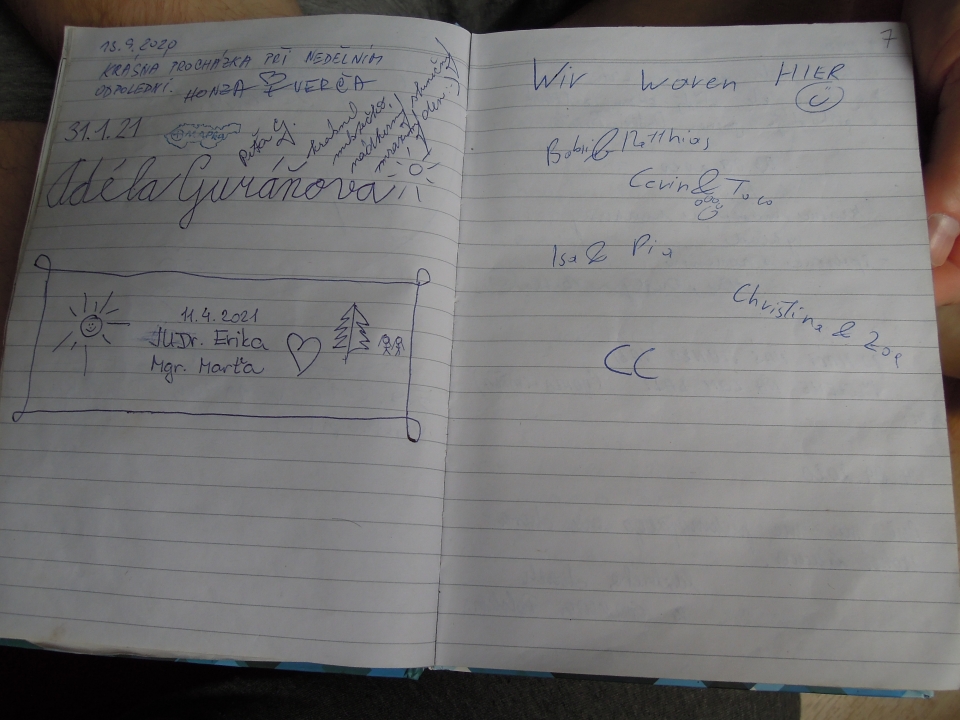 13.9.2020
KRÁSNÁ PROCHÁZKA PŘI NEDĚLNÍM
ODPOLEDNÍ. HONZA & VERČA
31.1.21
Petr G.
krásný
nádherný slunečný
mrazivý den :)
Adéla Guráňová
11.4.2021
JUDr. Erika
Mgr. Marťa
7
Wir waren HIER
& Matthias
Carin & Toco
Isa & Pia
Christina & Zoe
CC